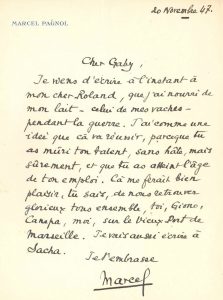 20 Novembre 47.
MARCEL PAGNOL
Cher Gaby,
Je viens d'écrire à l'instant à
mon cher Roland, que j'ai nourri de
mon lait - celui de mes vaches -
pendant la guerre. J'ai comme une
idée que ça va réussir, parce que tu
as mûri ton talent, sans hâte, mais
sûrement, et que tu as atteint l'âge
de ton emploi. Ça me ferait bien
plaisir, tu sais, de nous retrouver
glorieux tous ensemble, toi, Giono,
moi, sur le Vieux Port de
Marseille. Je vais aussi écrire à
Sacha.
Je t'embrasse
Marcel